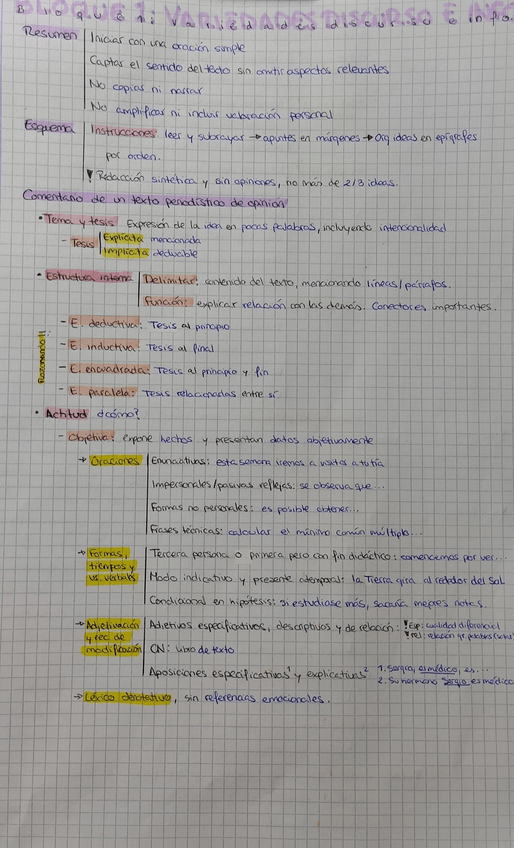 BLOQUE 1: VARIEDADES DISCURSO E INFO.
Resumen | Iniciar con una oración simple
Captar el sentido del texto sin omitir aspectos relevantes
No copias ni narrar
No amplificar ni incluir valoración personal
Esquema | Instrucciones: leer y subrayar → apuntes en márgenes → org ideas en epígrafes
por orden.
Redacción sintética y sin opiniones, no más de 2/3 ideas.
Comentario de un texto periodístico de opinión
• Tema y tesis Expresión de la idea en pocas palabras, incluyendo intencionalidad
- Tesis | Explícita mencionada
Implícita deducible
• Estructura interna | Delimitar: contenido del texto, mencionando líneas/párrafos.
Función: explicar relación con las demás. Conectores importantes.
Razonando!!:
- E. deductiva: Tesis al principio
- E. inductiva: Tesis al final
- E. encuadrada: Tesis al principio y fin
- E. paralela: Tesis relacionadas entre sí
• Actitud ¿cómo?
- Objetiva: expone hechos y presentan datos objetivamente
→ Oraciones | Enunciativas: esta semana iremos a visitar a tu tía
Impersonales/pasivas reflejas: se observa que...
Formas no personales: es posible obtener...
Frases técnicas: calcular el mínimo común múltiplo...
→ Formas, tiempos y us. verbales | Tercera persona o primera pero con fin didáctico: comencemos por ver...
Modo indicativo y presente atemporal: la Tierra gira alrededor del Sol
Condicional en hipótesis: si estudiase más, sacaría mejores notas.
→ Adjetivación y rec de modificación | Adjetivos especificativos, descriptivos y de relación: Esp: cualidad diferencial
rel: relación
CN: libro de texto
Aposiciones especificativas¹ y explicativas² 1. Sergio, es médico, es...
2. Su hermano Sergio es médico
→ Léxico denotativo, sin referencias emocionales.